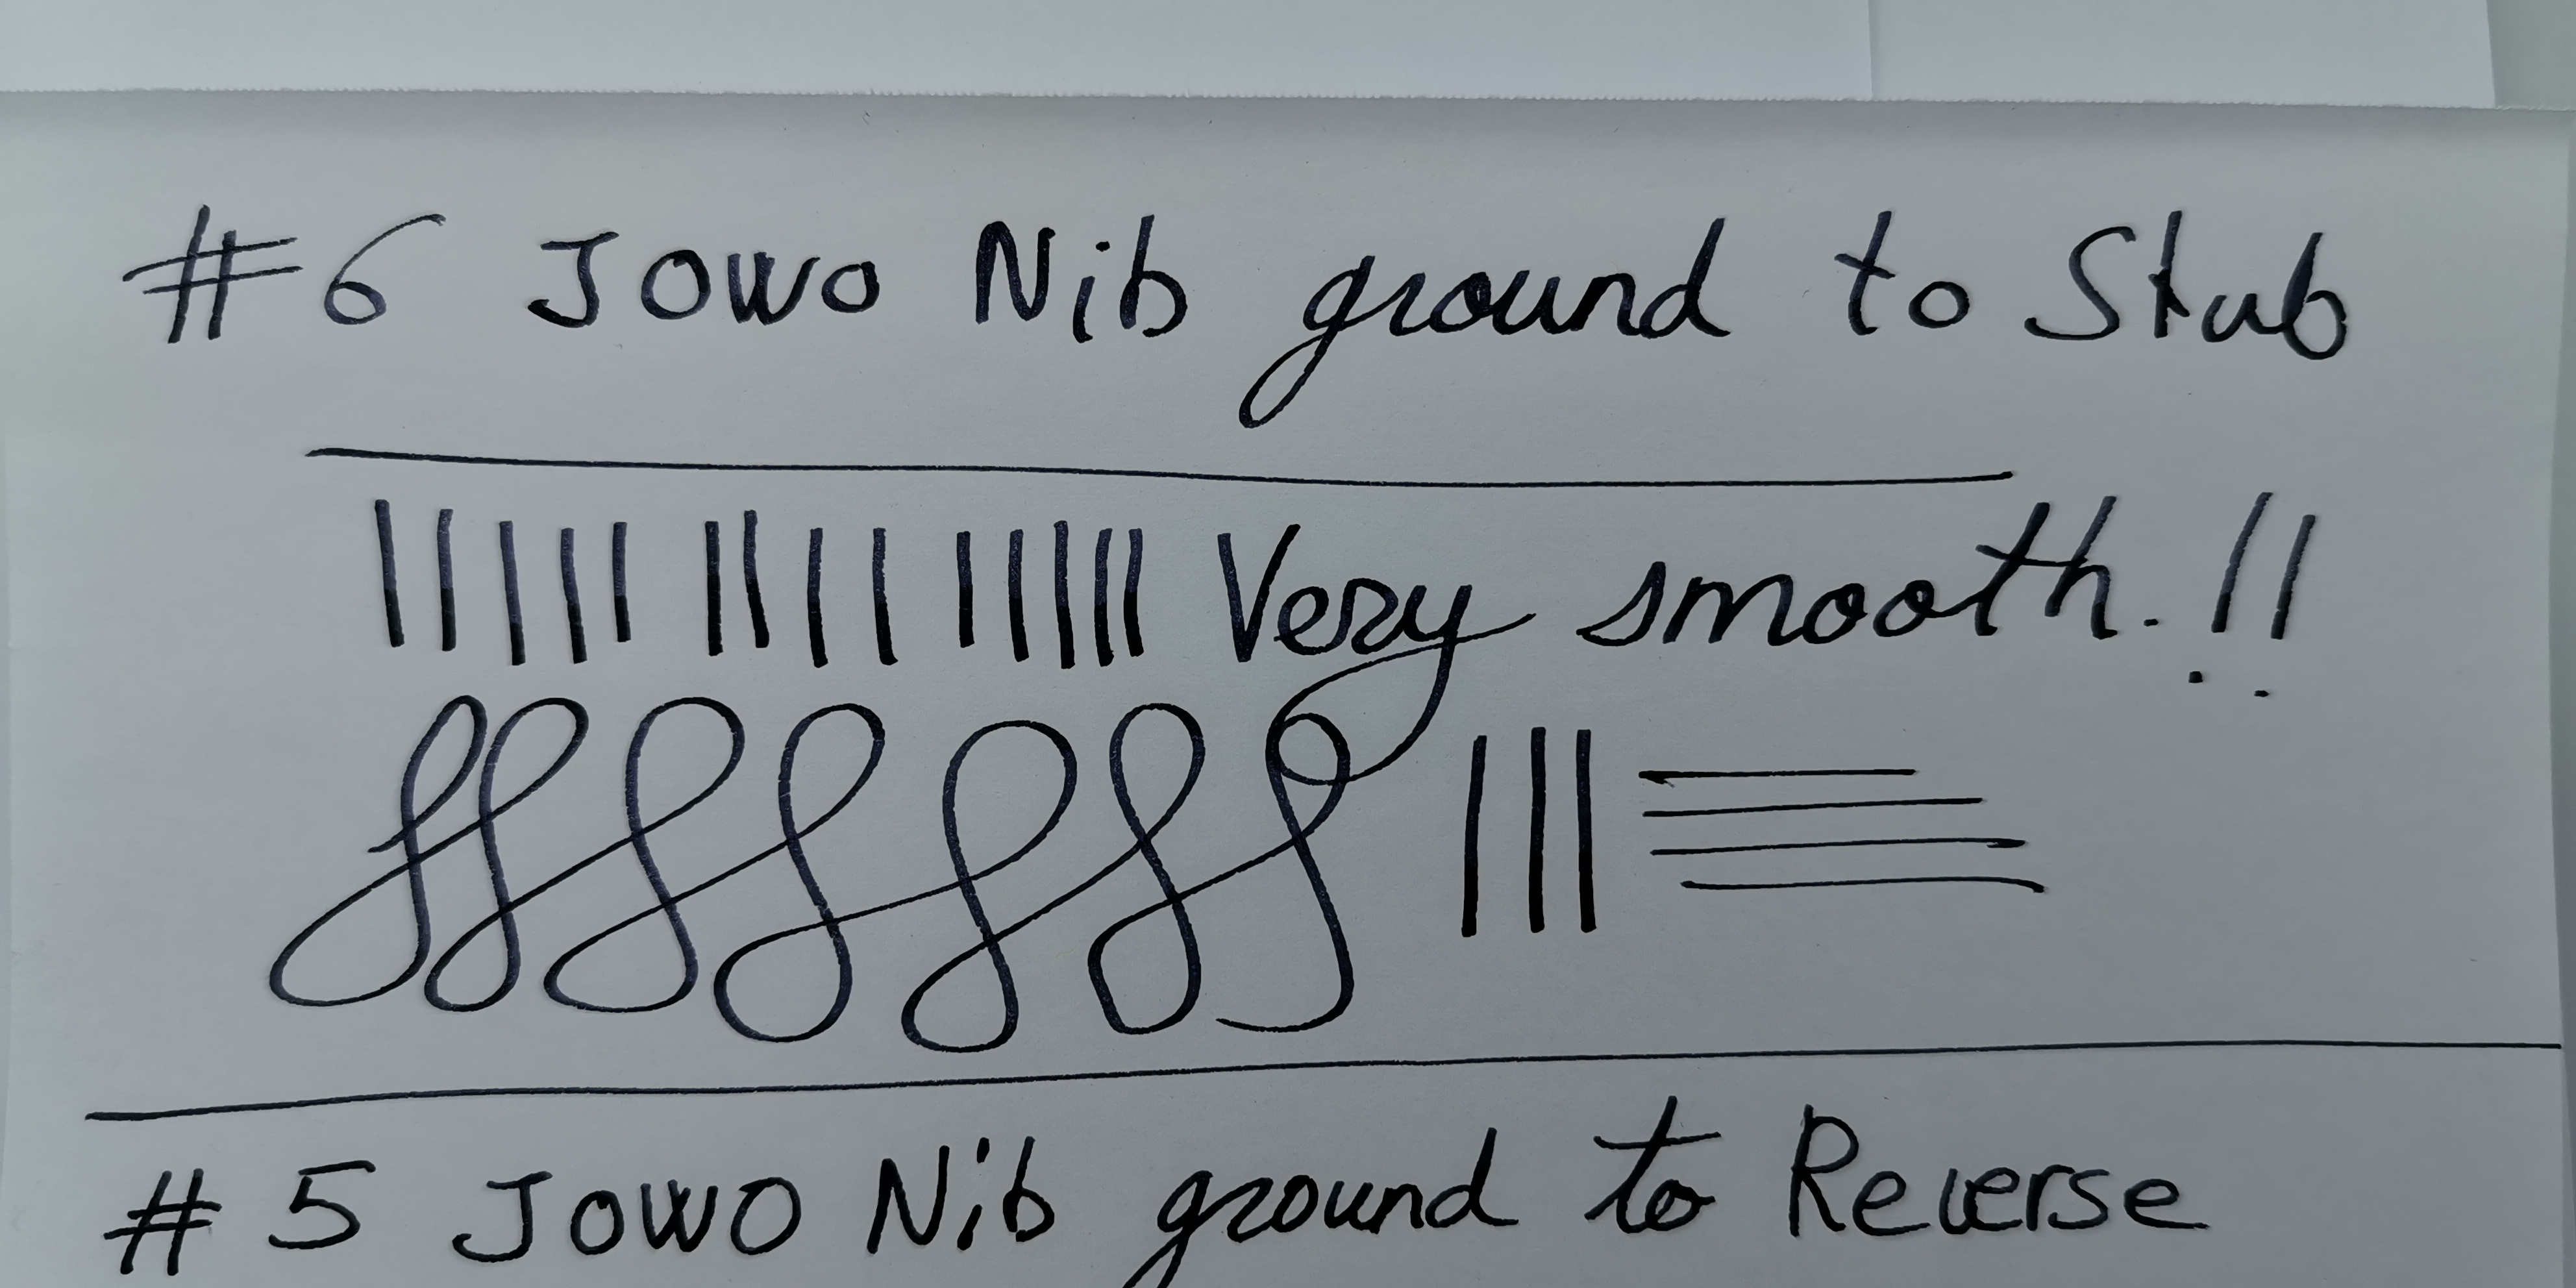 #6 Jowo Nib ground to Stub
Very smooth.!!
# 5 Jowo Nib ground to Reverse